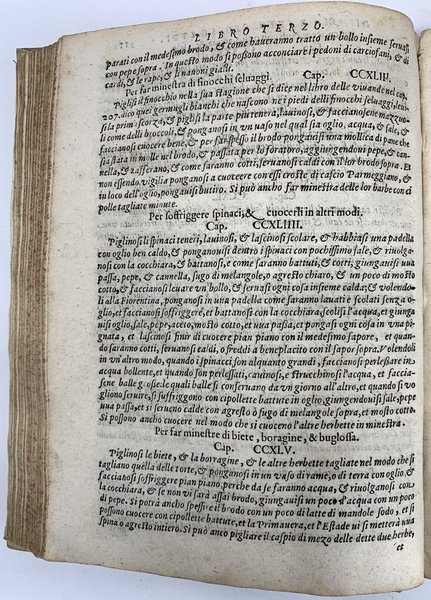 LIBRO TERZO.
parati con il medesimo brodo, & come haueranno tratto un bollo insieme seruasi
con pepe sopra. In questo modo si possono acconciare i pedoni di carciofani, & di
cardi, & le rape, & li nauoni gialli.
Per far minestra di finocchi seluaggi. Cap. CCXLIII.
Piglisi il finocchio nella sua stagione che si dice nel libro delle viuande nel cap.
207. dico quei germugli bianchi che nascono ne i piedi delli finocchi seluaggi, leui
si la prima scorza, & piglisi la parte piu tenera, lauinosi, & facciansene mazzuo
li come delli broccoli, & ponganosi in vn uaso nel qual sia oglio, acqua, & sale, &
facciansi cuocere bene, & per far spesso il brodo pongauisi una mollica di pane che
sia stata in molle nel brodo, & passata per lo foratoro, aggiungendoui pepe, & can-
nella, & zafferano, & come faranno cotti, seruansi caldi con il lor brodo sopra. Et
non essendo vigilia ponganosi a cuocere con essi croste di cascio Parmeggiano, &
in loco dell'oglio, pongauisi butiro. Si può anchor far minestra delle lor barbe con ci
polle tagliate minute.
Per soffriggere spinaci, & cuocerli in altri modi.
Cap. CCXLIIII.
Piglinosi li spinaci teneri, lauinosi, & lascinosi scolare, & habbiasi una padella
con oglio ben caldo, & ponganouisi dentro i spinaci con pochissimo sale, & riuolga-
nosi con la cocchiara, & battanosi, e come saranno battuti, & cotti, giungauisi uua
passa, pepe, & cannella, sugo di melangole, o agresto chiaro, & un poco di mosto
cotto, & faccianosi leuare un bollo, & seruasi ogni cosa insieme calda; & volendo-
li alla Fiorentina, ponganosi in una padella come saranno lauati & scolati senza o
glio, et faccianosi soffriggere, et battanosi con la cocchiara, scolisi l'acqua, et giunga
uisi oglio, sale, pepe, aceto, mosto cotto, et uua passa, et pongasi ogni cosa in vna pi-
gnata, et lascinosi finir di cuocere pian piano con il medesimo sapore, et quan-
do saranno cotti, seruansi caldi, o freddi a beneplacito con il sapor sopra. Volendoli
in vn'altro modo, quando i spinaci son alquanto grandi, faccianosi perlessare in
acqua bollente, et quando son perlessati, cauinosi, e strucchinosi l'acqua, et faccia-
sene balle grosse, le quali balle si conseruano da vn giorno all'altro, et quando si vo
gliono seruire, si suffriggono con cipollette battute in oglio, giungendouisi sale, pepe
uua passa, et si seruono calde con agresto ò sugo di melangole sopra, et mosto cotto.
Si possono anchor cuocere nel modo che si cuoceno l'altre herbette in minestra.
Per far minestre di biete, boragine, & buglossa.
Cap. CCXLV.
Piglinosi le biete, & la borragine, & le altre herbette tagliate nel modo che si
tagliano quella delle torte, & ponganosi in un vaso di rame, o di terra con oglio &
faccianosi soffriggere pian piano, perche da se faranno acqua, & riuolganosi con
la cocchiara, & se non vi sarà assai brodo, giungauisi un poco d'acqua con un poco
di pepe. Si potrà ancho spessir e il brodo con un poco di latte di mandole sodo, et si
possono cuocere con cipollette battute, et la Primauera, et l'Estade ui si metterà uua
spina o agresto intiero. Si può anco pigliare il caspio di mezo delle dette due herbe,
et